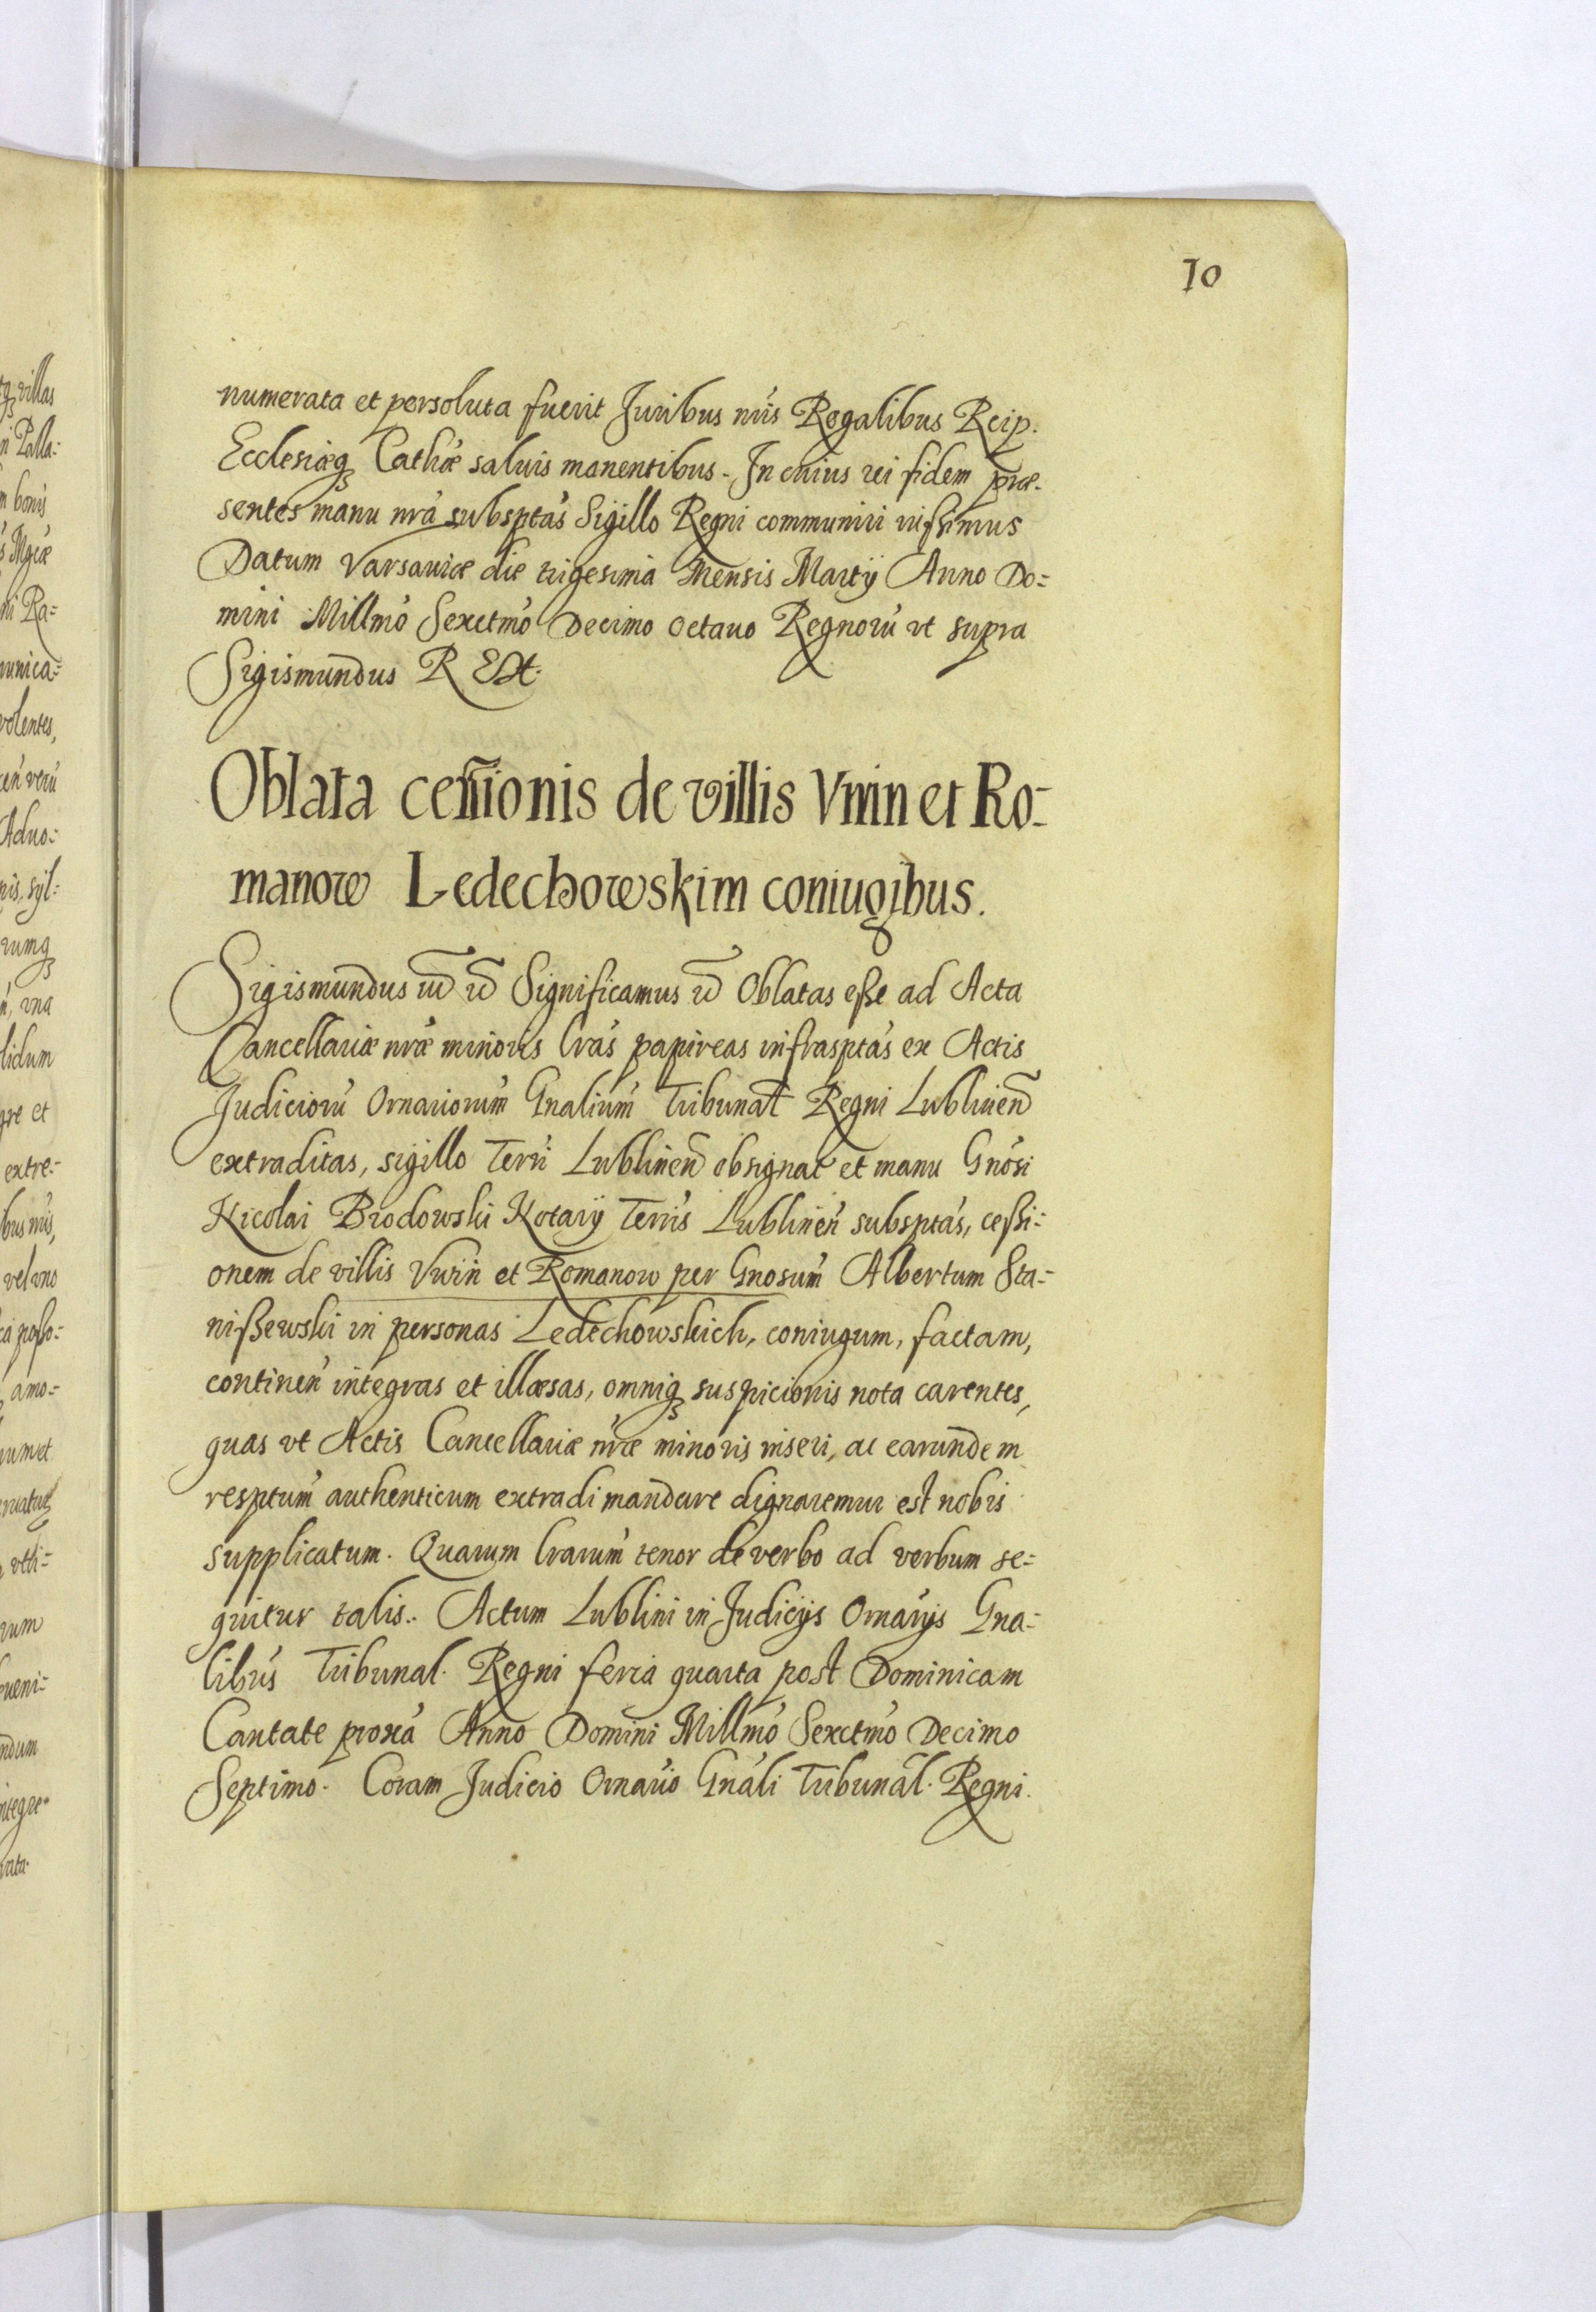 10
numerata et persoluta fuerit Juribus nr̄is Regalibus Reip.
Ecclesiæq Cathæ saluis manentibus. In cuius rei fidem præ-
sentes manu nr̄a subsptas Sigillo Regni communiri iussimus
Datum Varsauiæ die trigesima Mensis Martij Anno Do-
mini Millmo Sexctmo Decimo octauo Regnorū vt supra
Sigismundus R
Oblata cessionis de villis Vnin et Ro-
manow Ledechowskim coniugibus.
Sigismundus Significamus Oblatas esse ad Acta
Cancellariæ nr̄æ minoris lr̄as papireas infrasptas ex Actis
Judiciorū Ornariorum Gnalium Tribunal Regni Lublinen̄
extraditas, sigillo Terri Lublinen̄ obsignat et manu Gnosi
Nicolai Brodowski Notarij Terris Lublinen̄ subsptas, cessi-
onem de villis Vnin et Romanow per Gnosum Albertum Sta-
nißewski in personas Ledechowskich, coniugum, factam,
continen̄ integras et illæsas, omniq suspicionis nota carentes,
quas vt Actis Cancellariæ nr̄æ minoris inseri, ac earundem
resptum authenticum extradi mandare dignaremur est nobis
supplicatum. Quarum lr̄arum tenor de verbo ad verbum se-
quitur talis. Actum Lublini in Judicijs Ornarijs Gna-
libus Tribunal. Regni feria quarta post Dominicam
Cantate proxa Anno Domini Millmo Sexctmo Decimo
Septimo. Coram Judicio Ornario Gnali Tribunal. Regni.